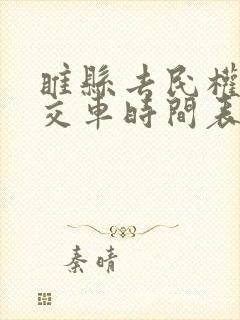 睢縣去民權
交車時間表
秦晴